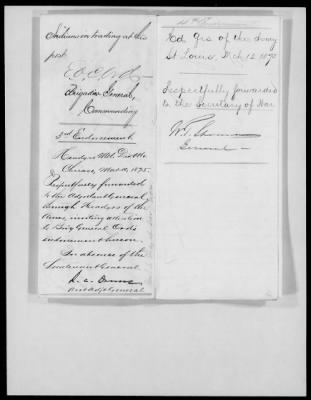 Indians in trading at this
post.
E.O.C. Ord
Brigadier General,
Commanding
3rd Endorsement.
Headqrs Mil. Div. Mo.
Chicago, Mar. 10, 1875.
Respectfully forwarded
to the Adjutant General
through Headqrs of the
Army, inviting attention
to Brig General Ord's
endorsement hereon.
In absence of the
Lieutenant General.
Asst Adjt General
Hd Qrs of the Army
St Louis, Mch 12 1875
Respectfully forwarded
to the Secretary of War
W.T. Sherman
General